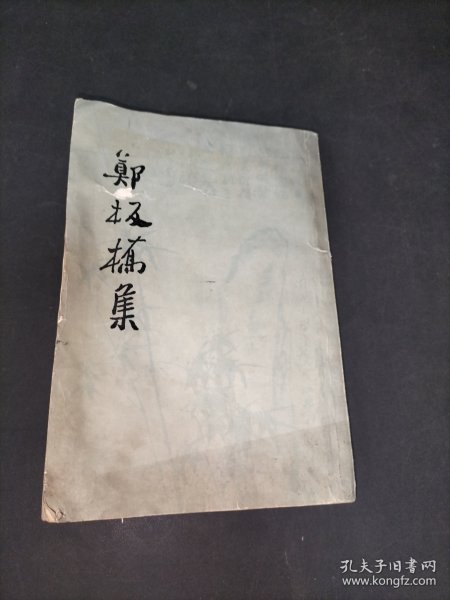 鄭板橋集
孔夫子旧书网
www.kongfz.com